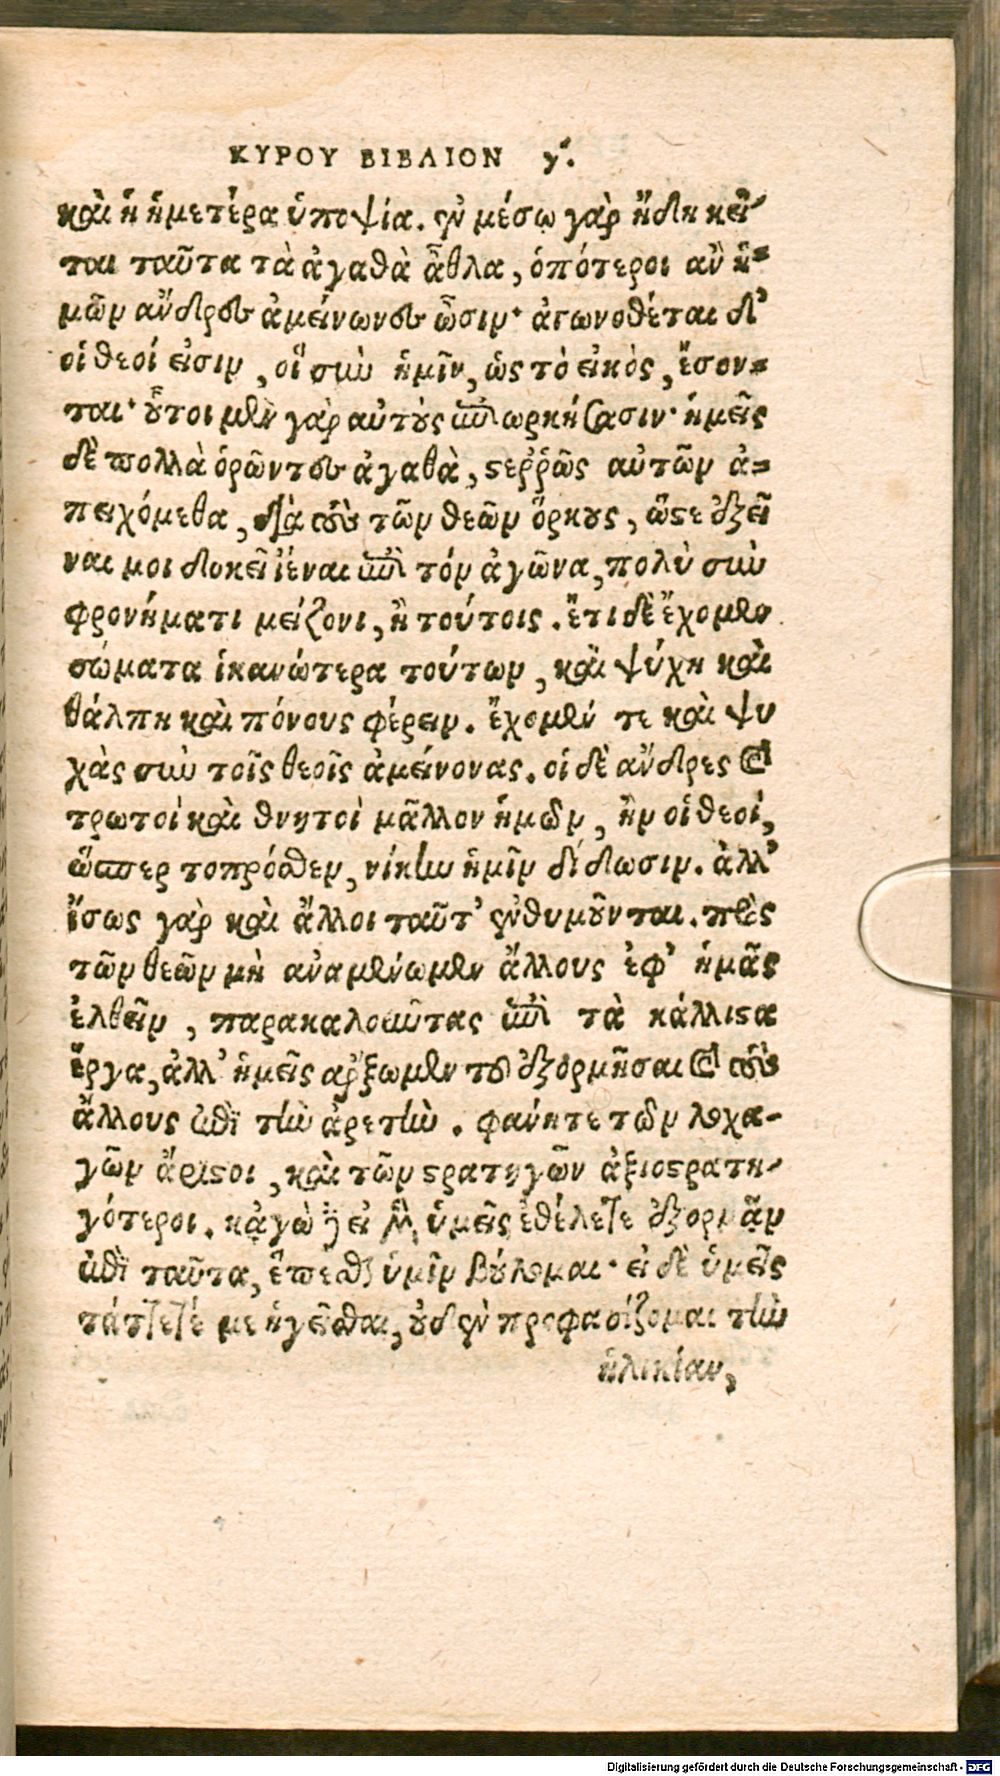 ΚΥΡΟΥ ΒΙΒΛΙΟΝ γ´.
καὶ ἡ ἡμετέρα ὑποψία. ἐν μέσῳ γὰρ ἤδη κεῖ-
ται ταῦτα τὰ ἀγαθὰ ἆθλα, ὁπότεροι ἂν ἡ-
μῶν ἄνδρες ἀμείνωνες ὦσιν· ἀγωνοθέται δ'
οἱ θεοί εἰσιν, οἳ σὺν ἡμῖν, ὡς τὸ εἰκὸς, ἔσον-
ται· οὗτοι μὲν γὰρ αὐτοὺς ἐπιωρκήκασιν· ἡμεῖς
δὲ πολλὰ ὁρῶντες ἀγαθὰ, στεῤῥῶς αὐτῶν ἀ-
πειχόμεθα, διὰ τοὺς τῶν θεῶν ὅρκους, ὥστε ἐξεῖ
ναι μοι δοκεῖ ἰέναι ἐπὶ τόν ἀγῶνα, πολὺ σὺν
φρονήματι μείζονι, ἢ τούτοις. ἔτι δὲ ἔχομεν
σώματα ἱκανώτερα τούτων, καὶ ψύχη καὶ
θάλπη καὶ πόνους φέρειν. ἔχομέν τε καὶ ψυ
χὰς σὺν τοῖς θεοῖς ἀμείνονας. οἱ δὲ ἄνδρες καὶ
τρωτοὶ καὶ θνητοὶ μᾶλλον ἡμῶν, ἢν οἱ θεοί,
ὥσπερ τοπρόσθεν, νίκην ἡμῖν δίδωσιν. ἀλλ'
ἴσως γὰρ καὶ ἄλλοι ταῦτ' ἐνθυμοῦνται. πρὸς
τῶν θεῶν μὴ ἀναμένωμεν ἄλλους ἐφ' ἡμᾶς
ἐλθεῖν, παρακαλοῦντας ἐπὶ τὰ κάλλιστα
ἔργα, ἀλλ' ἡμεῖς ἄρξωμεν τοῦ ἐξορμῆσαι καὶ τοὺς
ἄλλους ἐπὶ τὴν ἀρετὴν. φανήτε τῶν λοχα-
γῶν ἄριστοι, καὶ τῶν στρατηγῶν ἀξιοστρατη-
γότεροι. κᾀγὼ δὲ εἰ μὲν ὑμεῖς ἐθέλετε ἐξορμᾷν
ἐπὶ ταῦτα, ἕπεσθαι ὑμῖν βούλομαι· εἰ δὲ ὑμεῖς
τάττετέ με ἡγεῖσθαι, οὐδὲν προφασίζομαι τὴν
ἡλικίαν,
Digitalisierung gefördert durch die Deutsche Forschungsgemeinschaft - DFG